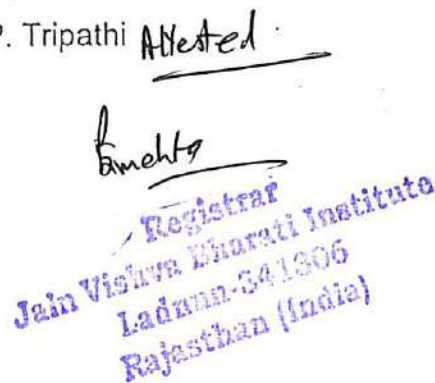 P. Tripathi Attested
Registrar
Jain Vishva Bharati Institute
Ladnun-341306
Rajasthan (India)